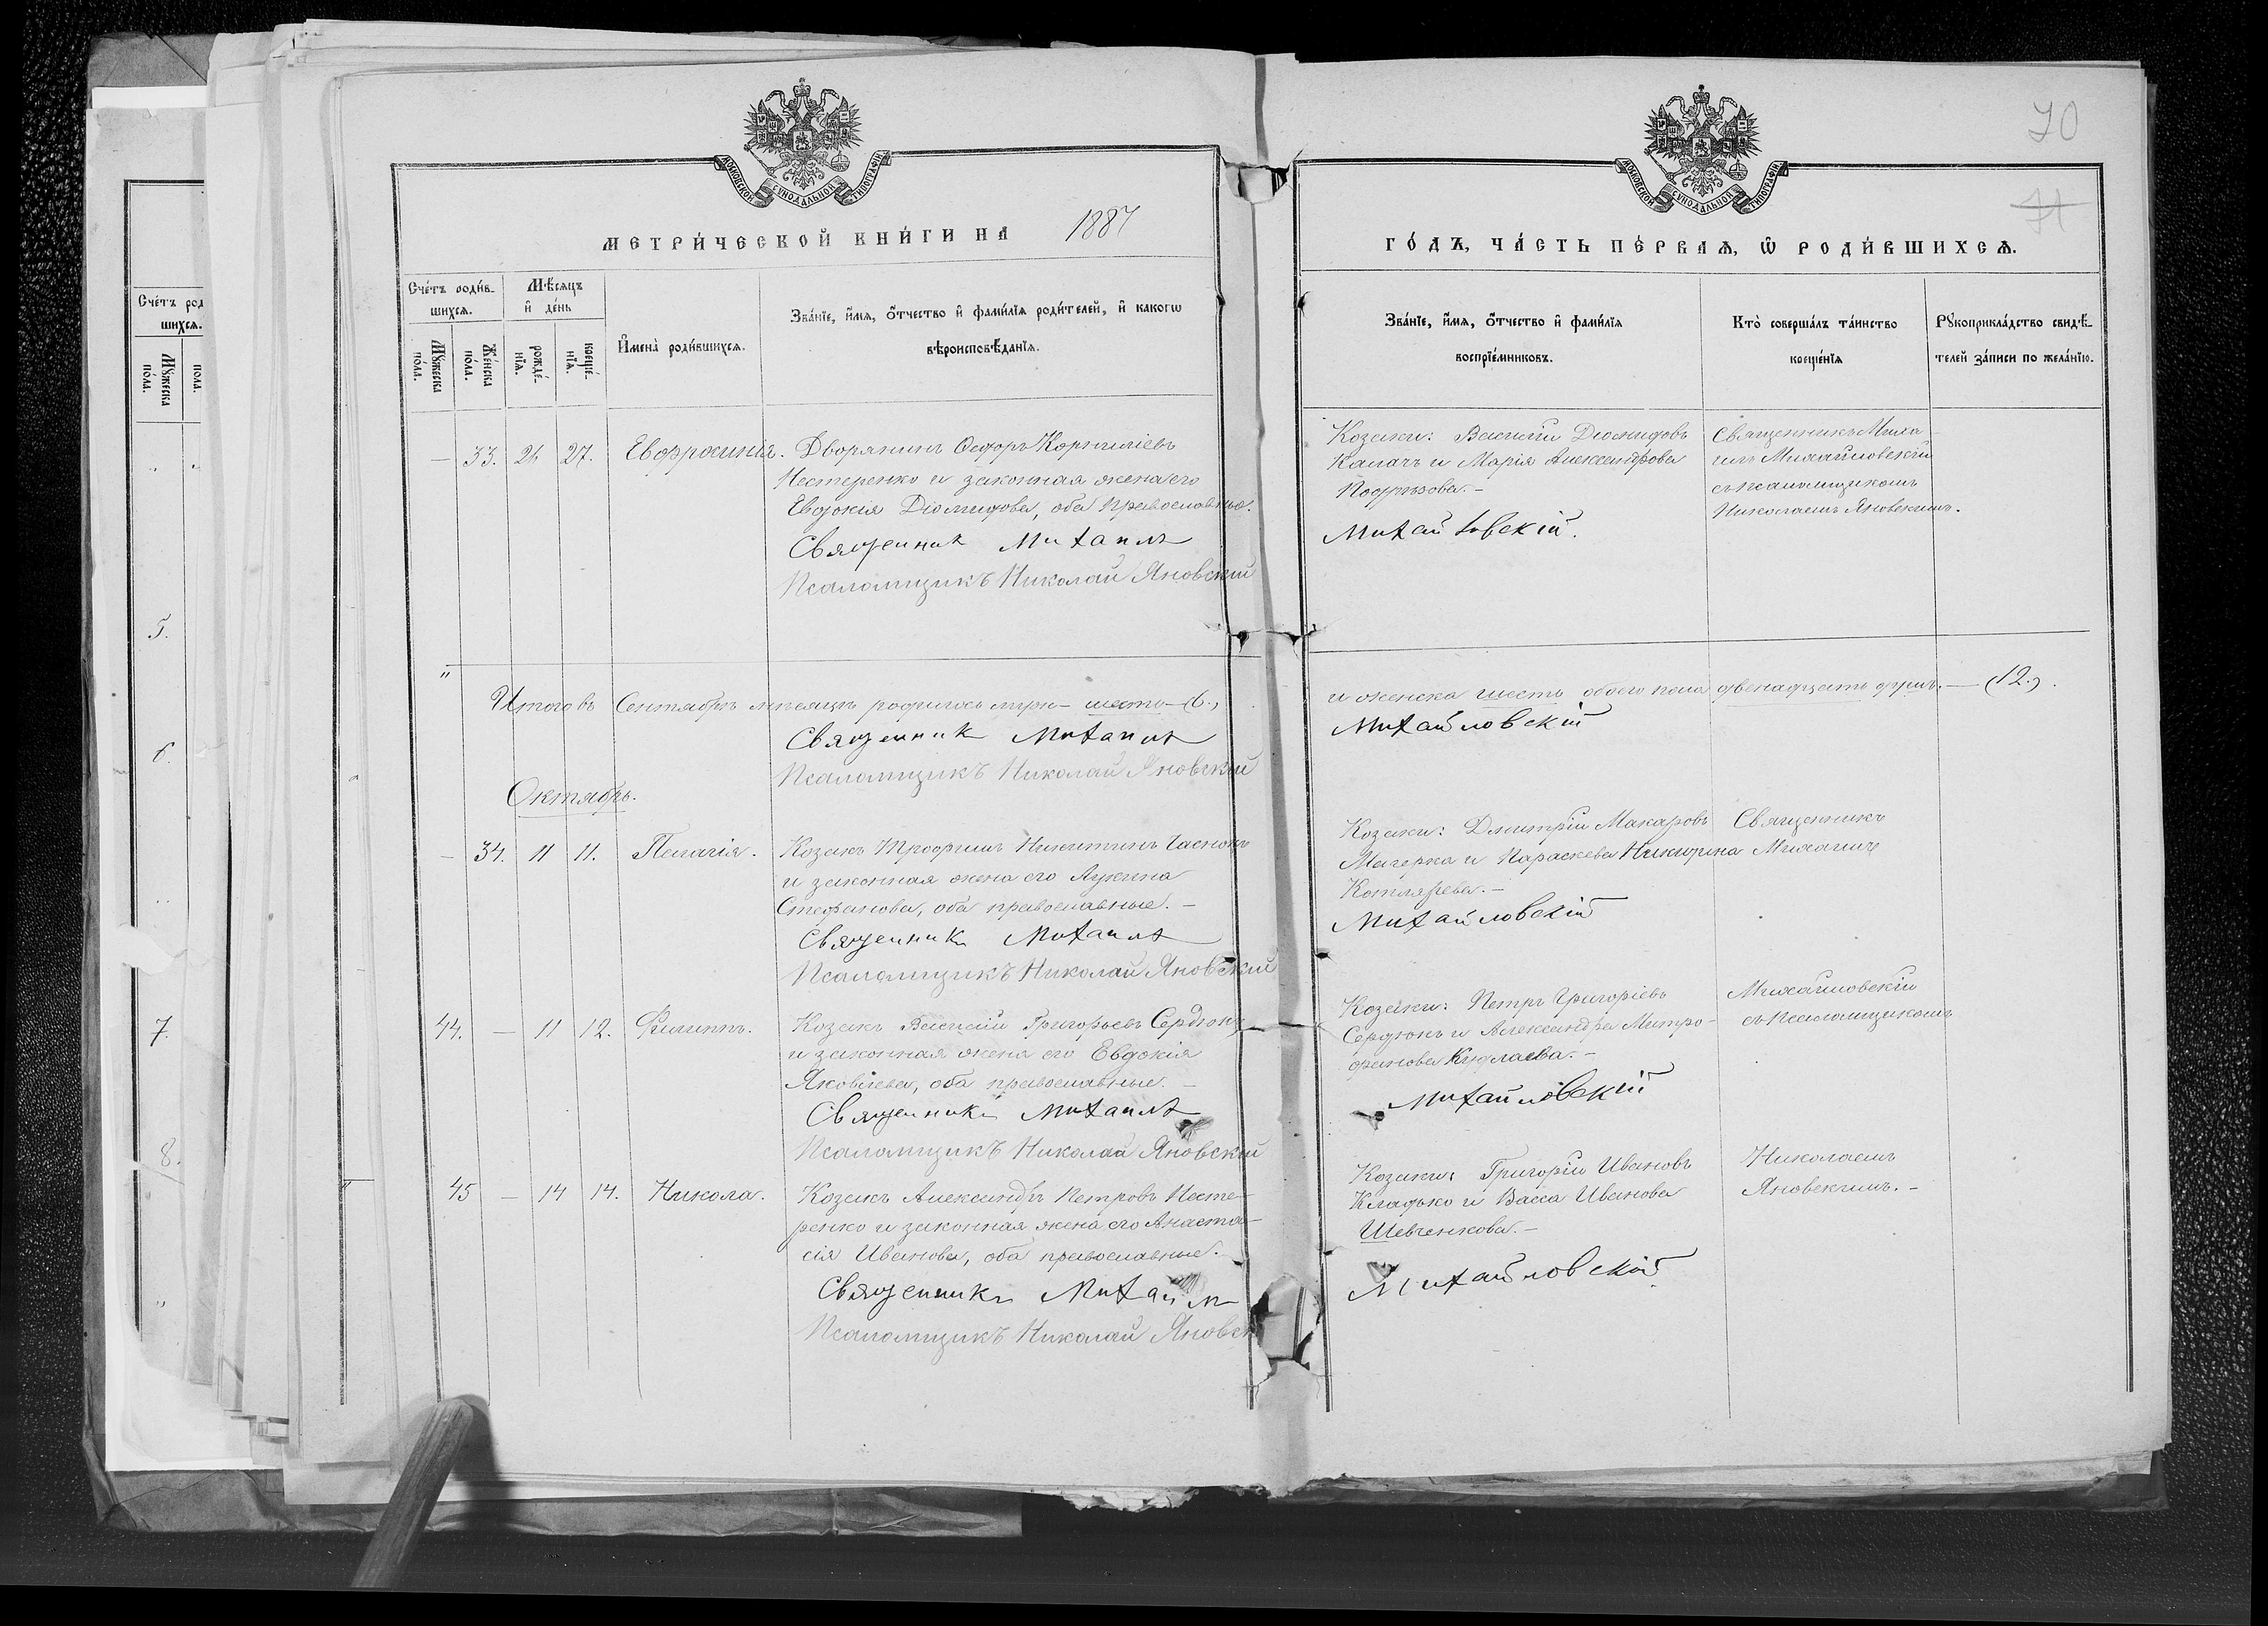 70
71
МОСКОВСКОЙ СУНОДАЛЬНОЙ ТИПОГРАФІИ
МОСКОВСКОЙ СУНОДАЛЬНОЙ ТИПОГРАФІИ
МЕТРИ́ЧЕСКОЙ КНИ́ГИ НА 1887
ГО́ДЪ, ЧА́СТЬ ПЕ́РВАѦ, Ѡ҆ РОДИ́ВШИХСѦ.
Сче́тъ роди́в-
шихсѧ.
Мꙋ́жеска по́ла.
Же́нска по́ла.
Мѣ́сѧцъ и҆ де́нь
рожде́-нїѧ.
креще́-нїѧ.
И҆мена̀ роди́вшихсѧ.
Зва́нїе, и҆́мѧ, ѻ҆́тчество и҆ фами́лїѧ роди́телей, и҆ како́гѡ
вѣроисповѣ́данїѧ.
Зва́нїе, и҆́мѧ, ѻ҆́тчество и҆ фами́лїѧ
воспрїе́мниковъ.
Кто̀ соверша́лъ та́инство
креще́нїѧ
Рꙋкоприкла́дство свидѣ́-
телей за́писи по жела́нїю.
Сче́тъ род
шихсѧ.
Мꙋ́жеска по́ла.
пола.
5.
6.
7.
8.
— 33. 26 27. Евфросинія. Дворянинъ Ѳеодоръ Корниліевъ
Нестеренко и законная жена его
Евдокія Діомидова, оба православные.
Священникъ Михаилъ
Псаломщикъ Николай Яновскій
Козаки: Василій Діомидовъ
Калачъ и Марія Александрова
Подрѣзова.—
Михайловскій.
Священникъ Миха-
илъ Михайловскій
съ псаломщикомъ
Николаемъ Яновскимъ.
Итого въ Сентябрѣ мѣсяцѣ родилось муж— шесть—(6.)
и женска шесть обоего пола двенадцать душъ.—(12.).
Священникъ Михаилъ
Михайловскій
Псаломщикъ Николай Яновскій
Октябрь.
— 34. 11 11. Пелагія. Козакъ Трофимъ Никитинъ Часнокъ
и законная жена его Лукина
Стефанова, оба православные.—
Священникъ Михаилъ
Псаломщикъ Николай Яновскій
Козаки: Дмитрій Макаровъ
Магерка и Параскева Никифрина
Котлярева.—
Михайловскій
Священникъ
Михаилъ
44. — 11 12. Филиппъ. Козакъ Василій Григорьевъ Сердюкъ
и законная жена его Евдокія
Яковлева, оба православные.—
Священникъ Михаилъ
Псаломщикъ Николай Яновскій
Козаки: Петръ Григоріевъ
Сердюкъ и Александра Митро-
фанова Кидлаева.—
Михайловскій
Михайловскій
съ псаломщикомъ
45 — 14 14. Никола. Козакъ Александръ Петровъ Несте-
ренко и законная жена его Анаста-
сія Иванова, оба православные.
Священникъ Михаилъ
Псаломщикъ Николай Яновск
Козаки: Григорій Ивановъ
Кладько и Васса Иванова
Шевченкова.—
Михайловскій
Николаемъ
Яновскимъ.—